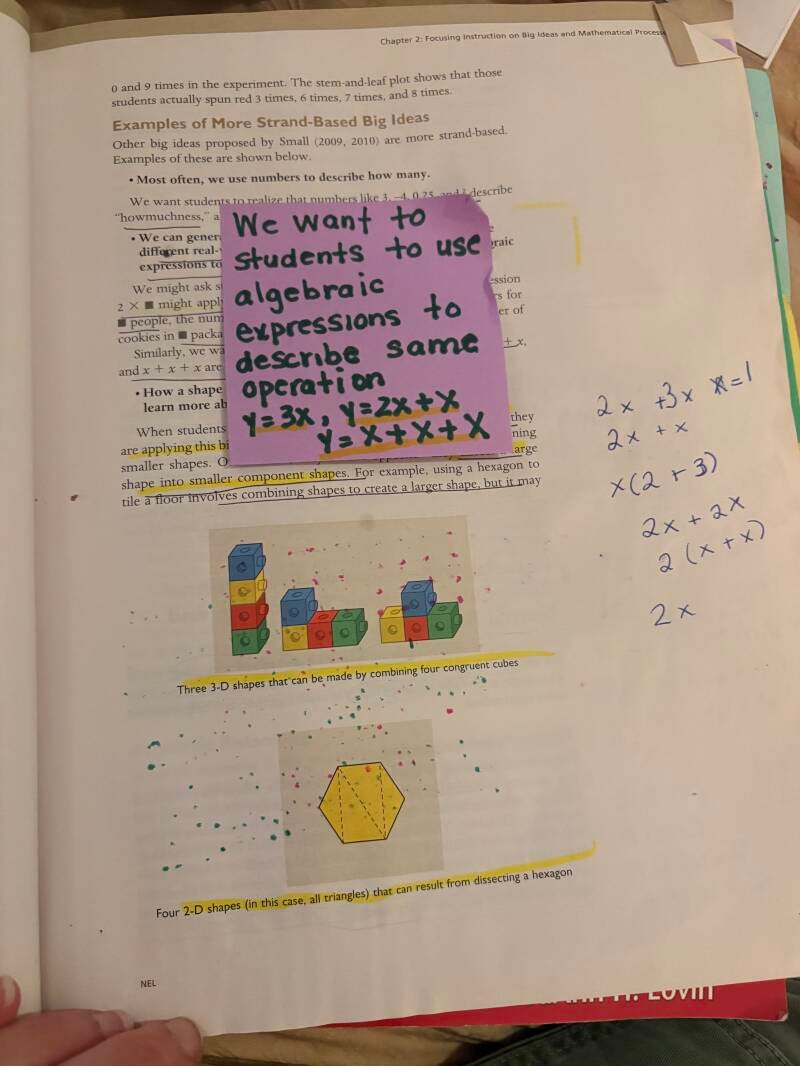 Chapter 2: Focusing Instruction on Big Ideas and Mathematical Process
0 and 9 times in the experiment. The stem-and-leaf plot shows that those
students actually spun red 3 times, 6 times, 7 times, and 8 times.
Examples of More Strand-Based Big Ideas
Other big ideas proposed by Small (2009, 2010) are more strand-based.
Examples of these are shown below.
• Most often, we use numbers to describe how many.
We want students to realize that numbers like 3, –4, 0.25, and describe
"howmuchness," a
• We can gener
different real-
raic
expressions to
We might ask s
ssion
2 × ■ might appl
rs for
■ people, the num
er of
cookies in ■ packa
Similarly, we wa
+ x,
and x + x + x are
• How a shape
learn more ab
When students
they
are applying this bi
ning
smaller shapes. O
arge
shape into smaller component shapes. For example, using a hexagon to
tile a floor involves combining shapes to create a larger shape, but it may
We want to
students to use
algebraic
expressions to
describe same
operation
y=3x, y=2x+x
y=x+x+x
2x +3x x=1
2x + x
x(2+3)
2x + 2x
2(x+x)
2x
Three 3-D shapes that can be made by combining four congruent cubes
Four 2-D shapes (in this case, all triangles) that can result from dissecting a hexagon
NEL
H. Lovin